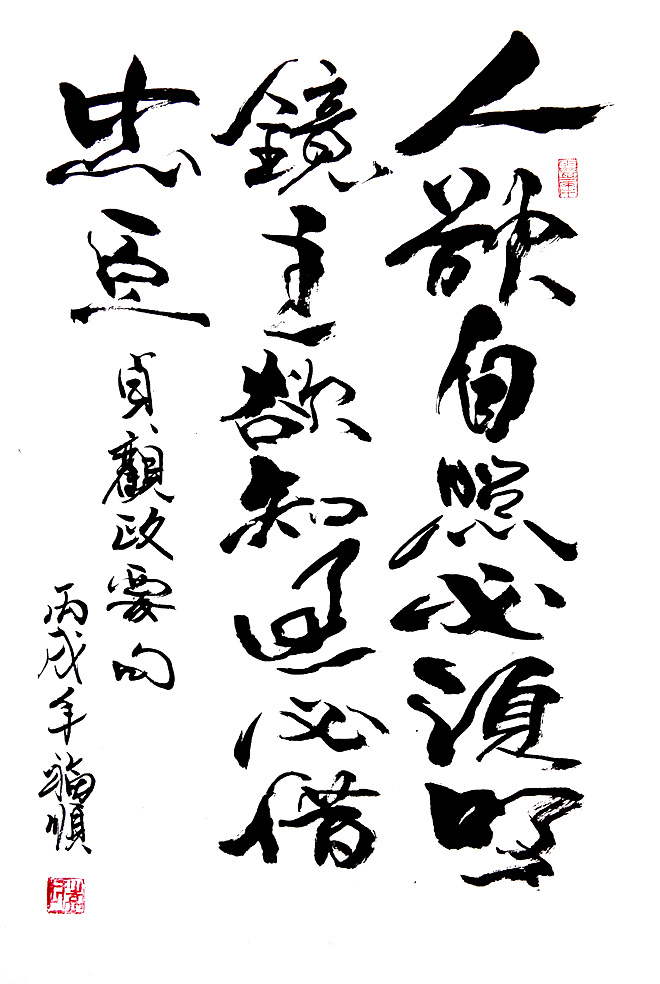 人欲自照必須明
鏡主欲知過必借
忠臣
貞觀政要句
丙戌年福順